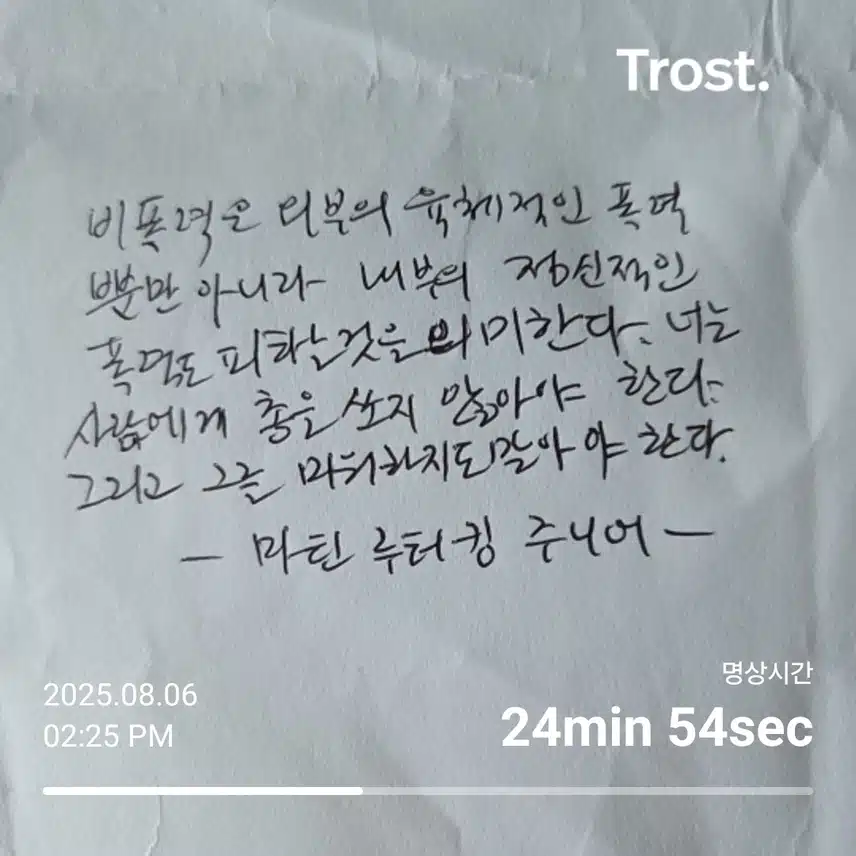 Trost.
비폭력은 외부의 육체적인 폭력
뿐만 아니라 내부의 정신적인
폭력도 피하는것을 의미한다. 너는
사람에게 총을 쏘지 않아야 한다.
그리고 그를 미워하지도말아야 한다.
— 마틴 루터킹 주니어 —
명상시간
2025.08.06
24min 54sec
02:25 PM